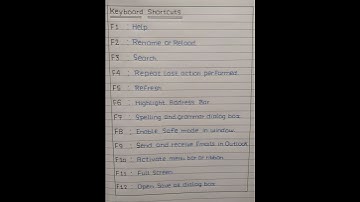 Keyboard Shortcuts
F1 : Help
F2 : Rename or Reload
F3 : Search
F4 : Repeat last action performed
F5 : Refresh
F6 : Highlight Address Bar
F7 : Spelling and grammar dialog box
F8 : Enable Safe mode in window
F9 : Send and receive Emails in Outlook
F10 : Activate menu bar or ribbon
F11 : Full Screen
F12 : Open Save as dialog box